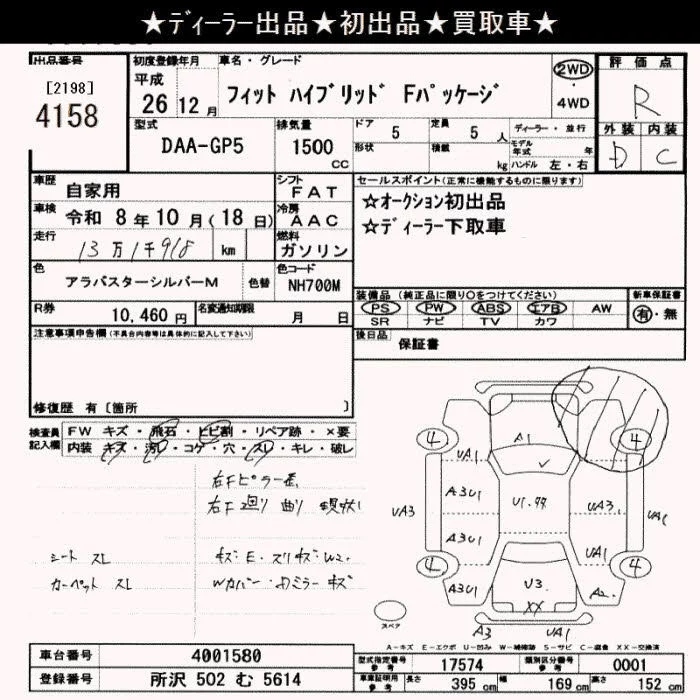 ★ディーラー出品★初出品★買取車★
出品番号
[2198]
4158
初度登録年月
平成
26 12月
車名・グレード
フィット ハイブリッド Fパッケージ
2WD
・
4WD
評価点
R
外装 内装
D C
型式
DAA-GP5
排気量
1500
cc
ドア 5
形状
定員 5 人
積載 kg
ディーラー・並行
モデル年式 年
ハンドル 左・右
車歴 自家用
シフト
FAT
車検 令和 8年10月(18日)
冷房
AAC
走行 13万1千918 km
燃料
ガソリン
色 アラバスターシルバーM 色替
色コード
NH700M
R券 10,460円
名変通知期限 月 日
セールスポイント(正常に機能するものに限ります)
☆オークション初出品
☆ディーラー下取車
装備品(純正品に限り○をつけてください)
PS PW ABS エアB AW
SR ナビ TV カワ
新車保証書
有・無
後日品 保証書
注意事項申告欄(不具合内容等は具体的に記入して下さい)
修復歴 有[箇所 ]
検査員
記入欄
FW キズ・飛石・ヒビ割・リペア跡・×要
内装 キズ・汚レ・コゲ・穴・スレ・キレ・破レ
右Fピラー
右F廻り 曲り 現状
シート スレ
カーペット スレ
キズ・E・スリキズ W2
Wカバー・Dミラー キズ
4 4
A1
UA1
A3U1
U1.
UA3
UA3.
UA1
A3U1
UA1
4 4
A3U1
U3
XX
A2
A3 UA1
スペア
A-キズ E-エクボ U-凹み W-補修跡 S-サビ C-腐食 XX-交換済
車台番号 4001580
登録番号 所沢 502 む 5614
型式指定番号
参考
17574
類別区分番号
参考
0001
車車証明用
参考
長さ 395 cm
幅 169 cm
高さ 152 cm